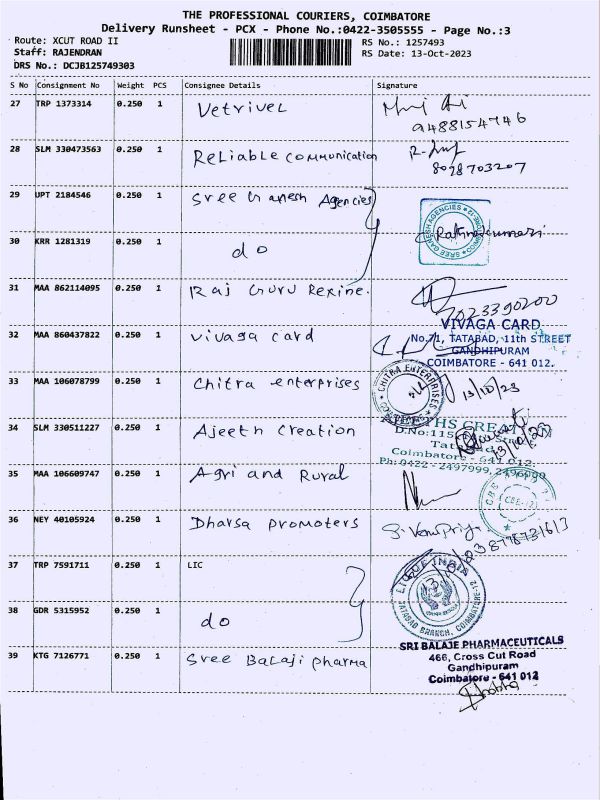 THE PROFESSIONAL COURIERS, COIMBATORE
Delivery Runsheet - PCX - Phone No.:0422-3505555 - Page No.:3
Route: XCUT ROAD II
RS No.: 1257493
Staff: RAJENDRAN
RS Date: 13-Oct-2023
DRS No.: DCJB125749303
S No Consignment No Weight PCS Consignee Details Signature
27 TRP 1373314 0.250 1 Vetrivel
9488154746
28 SLM 330473563 0.250 1 Reliable communication
8098703207
29 UPT 2184546 0.250 1 Sree Ganesh Agencies
SREE GANESH AGENCIES
30 KRR 1281319 0.250 1 do
31 MAA 862114095 0.250 1 Raj Guru Rexine.
32 MAA 860437822 0.250 1 vivaga card
VIVAGA CARD
No.71, TATABAD, 11th STREET
GANDHIPURAM
COIMBATORE - 641 012.
33 MAA 106078799 0.250 1 Chitra enterprises
CHITRA ENTERPRISES
13/10/23
34 SLM 330511227 0.250 1 Ajeeth Creation
D.No:115
Coimbatore - 641 012.
Ph: 0422 - 2497999,
35 MAA 106609747 0.250 1 Agri and Rural
CBE-12
36 NEY 40105924 0.250 1 Dharsa promoters
37 TRP 7591711 0.250 1 LIC
LIC OF INDIA
TATABAD BRANCH, COIMBATORE-12
38 GDR 5315952 0.250 1 do
39 KTG 7126771 0.250 1 Sree Balaji pharma
SRI BALAJE PHARMACEUTICALS
466, Cross Cut Road
Gandhipuram
Coimbatore - 641 012